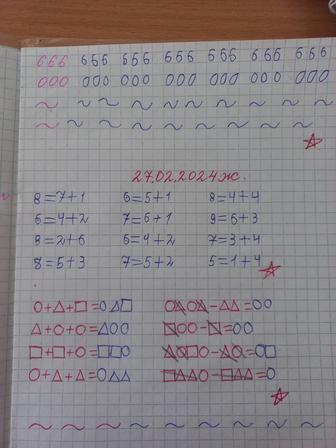 666 666 666 666 666 666 666
000 000 000 000 000 000 000
27.02.2024ж.
8=7+1 6=5+1 8=4+4
6=4+2 7=6+1 9=6+3
8=2+6 6=4+2 7=3+4
8=5+3 7=5+2 5=1+4
O+△+□=O△□ O△O△-△△=OO
△+O+O=△OO □OO-□=OO
□+□+O=□□O △O□O-△O=O□
O+△+△=O△△ □△△O-□△△=O